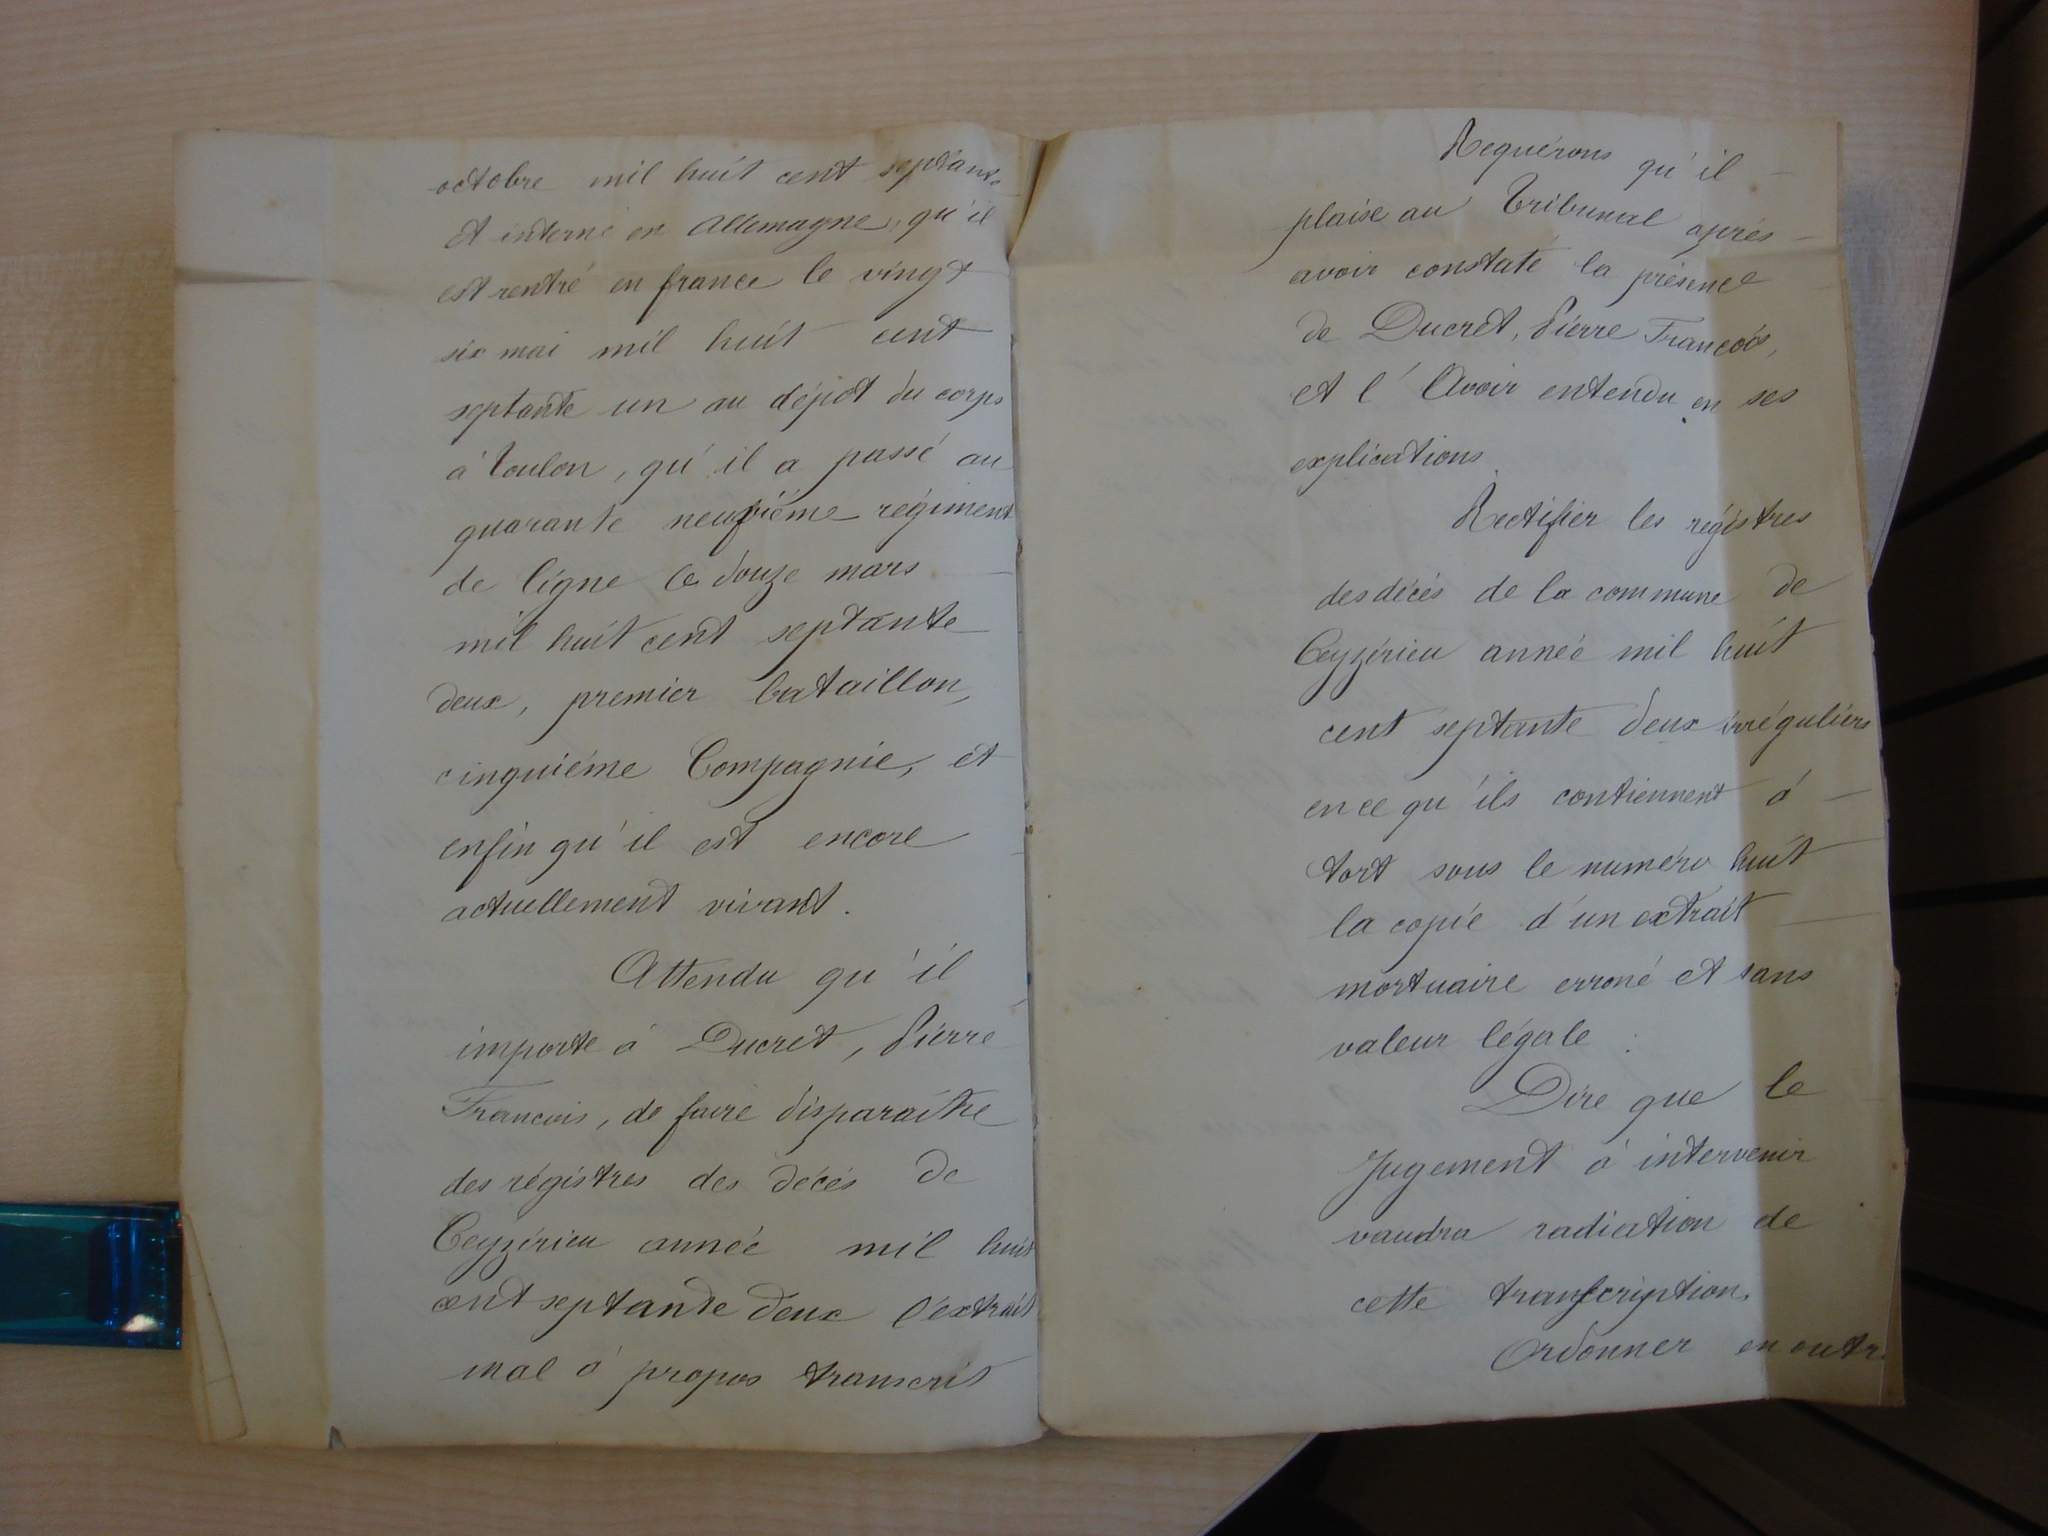 octobre mil huit cent septante
et interné en Allemagne, qu'il
est rentré en france le vingt
six mai mil huit cent
septante un au dépot du corps
à Toulon, qu'il a passé au
quarante neufvième régiment
de ligne le douze mars
mil huit cent septante
deux, premier bataillon,
cinquième Compagnie, et
enfin qu'il est encore
actuellement vivant.
Attendu qu'il
importe à Ducret, Pierre
François, de faire disparaître
des régistres des décés de
Ceyzérieu année mil huit
cent septante deux l'extrait
mal à propos transcrit
Requérons qu'il
plaise au Tribunal après
avoir constaté la présence
de Ducret, Pierre François,
et l'Avoir entendu en ses
explications.
Rectifier les régistres
des décés de la commune de
Ceyzérieu année mil huit
cent septante deux irréguliers
en ce qu'ils contiennent à
tort sous le numéro huit
la copie d'un extrait
mortuaire erroné et sans
valeur légale.
Dire que le
Jugement à intervenir
vaudra radiation de
cette transcription.
Ordonner en outre